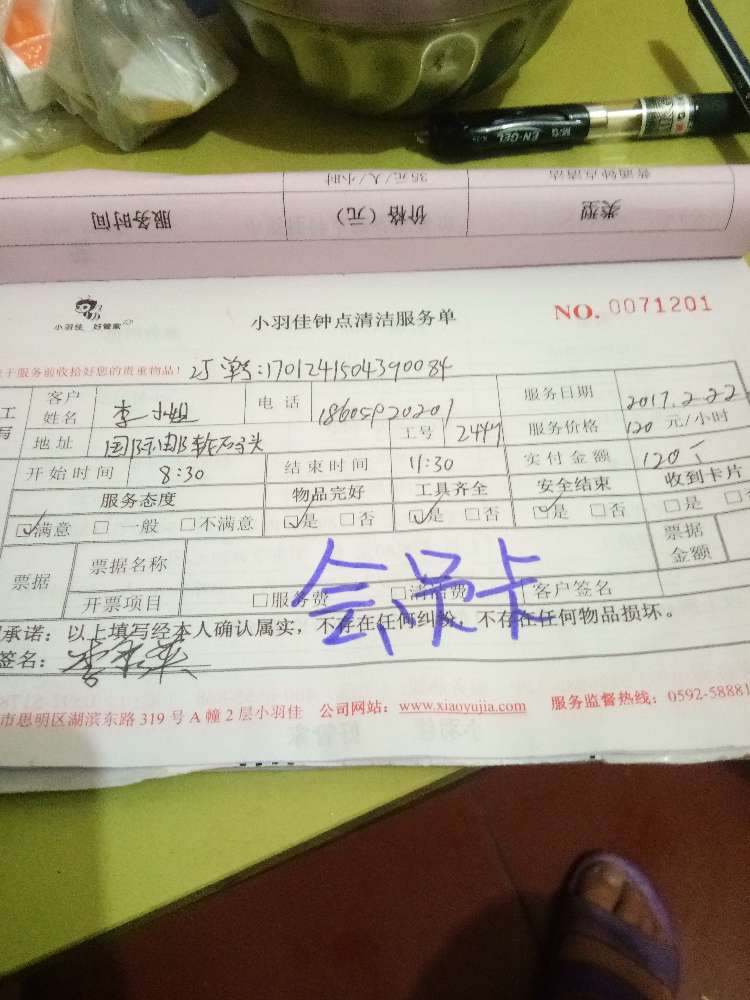 EN-GEL
普通钟点清洁 35元/人/小时
类型 价格（元） 服务时间
小羽佳 好管家
小羽佳钟点清洁服务单
NO. 0071201
于服务前收拾好您的贵重物品！ 订单号:1701241504390084
客户姓名 李小姐 电话 服务日期 2017.2.22
地址 国际邮轮码头 工号 2447 服务价格 120 元/小时
开始时间 8:30 结束时间 11:30 实付金额 120
服务态度 物品完好 工具齐全 安全结束 收到卡片
☑满意 □一般 □不满意 ☑是 □否 ☑是 □否 ☑是 □否 □是
票据 票据名称 票据金额
开票项目 □服务费 □清洁费 客户签名
会员卡
承诺：以上填写经本人确认属实，不存在任何纠纷，不存在任何物品损坏。
签名：
市思明区湖滨东路 319 号 A 幢 2 层小羽佳 公司网站：www.xiaoyujia.com 服务监督热线：0592-58881